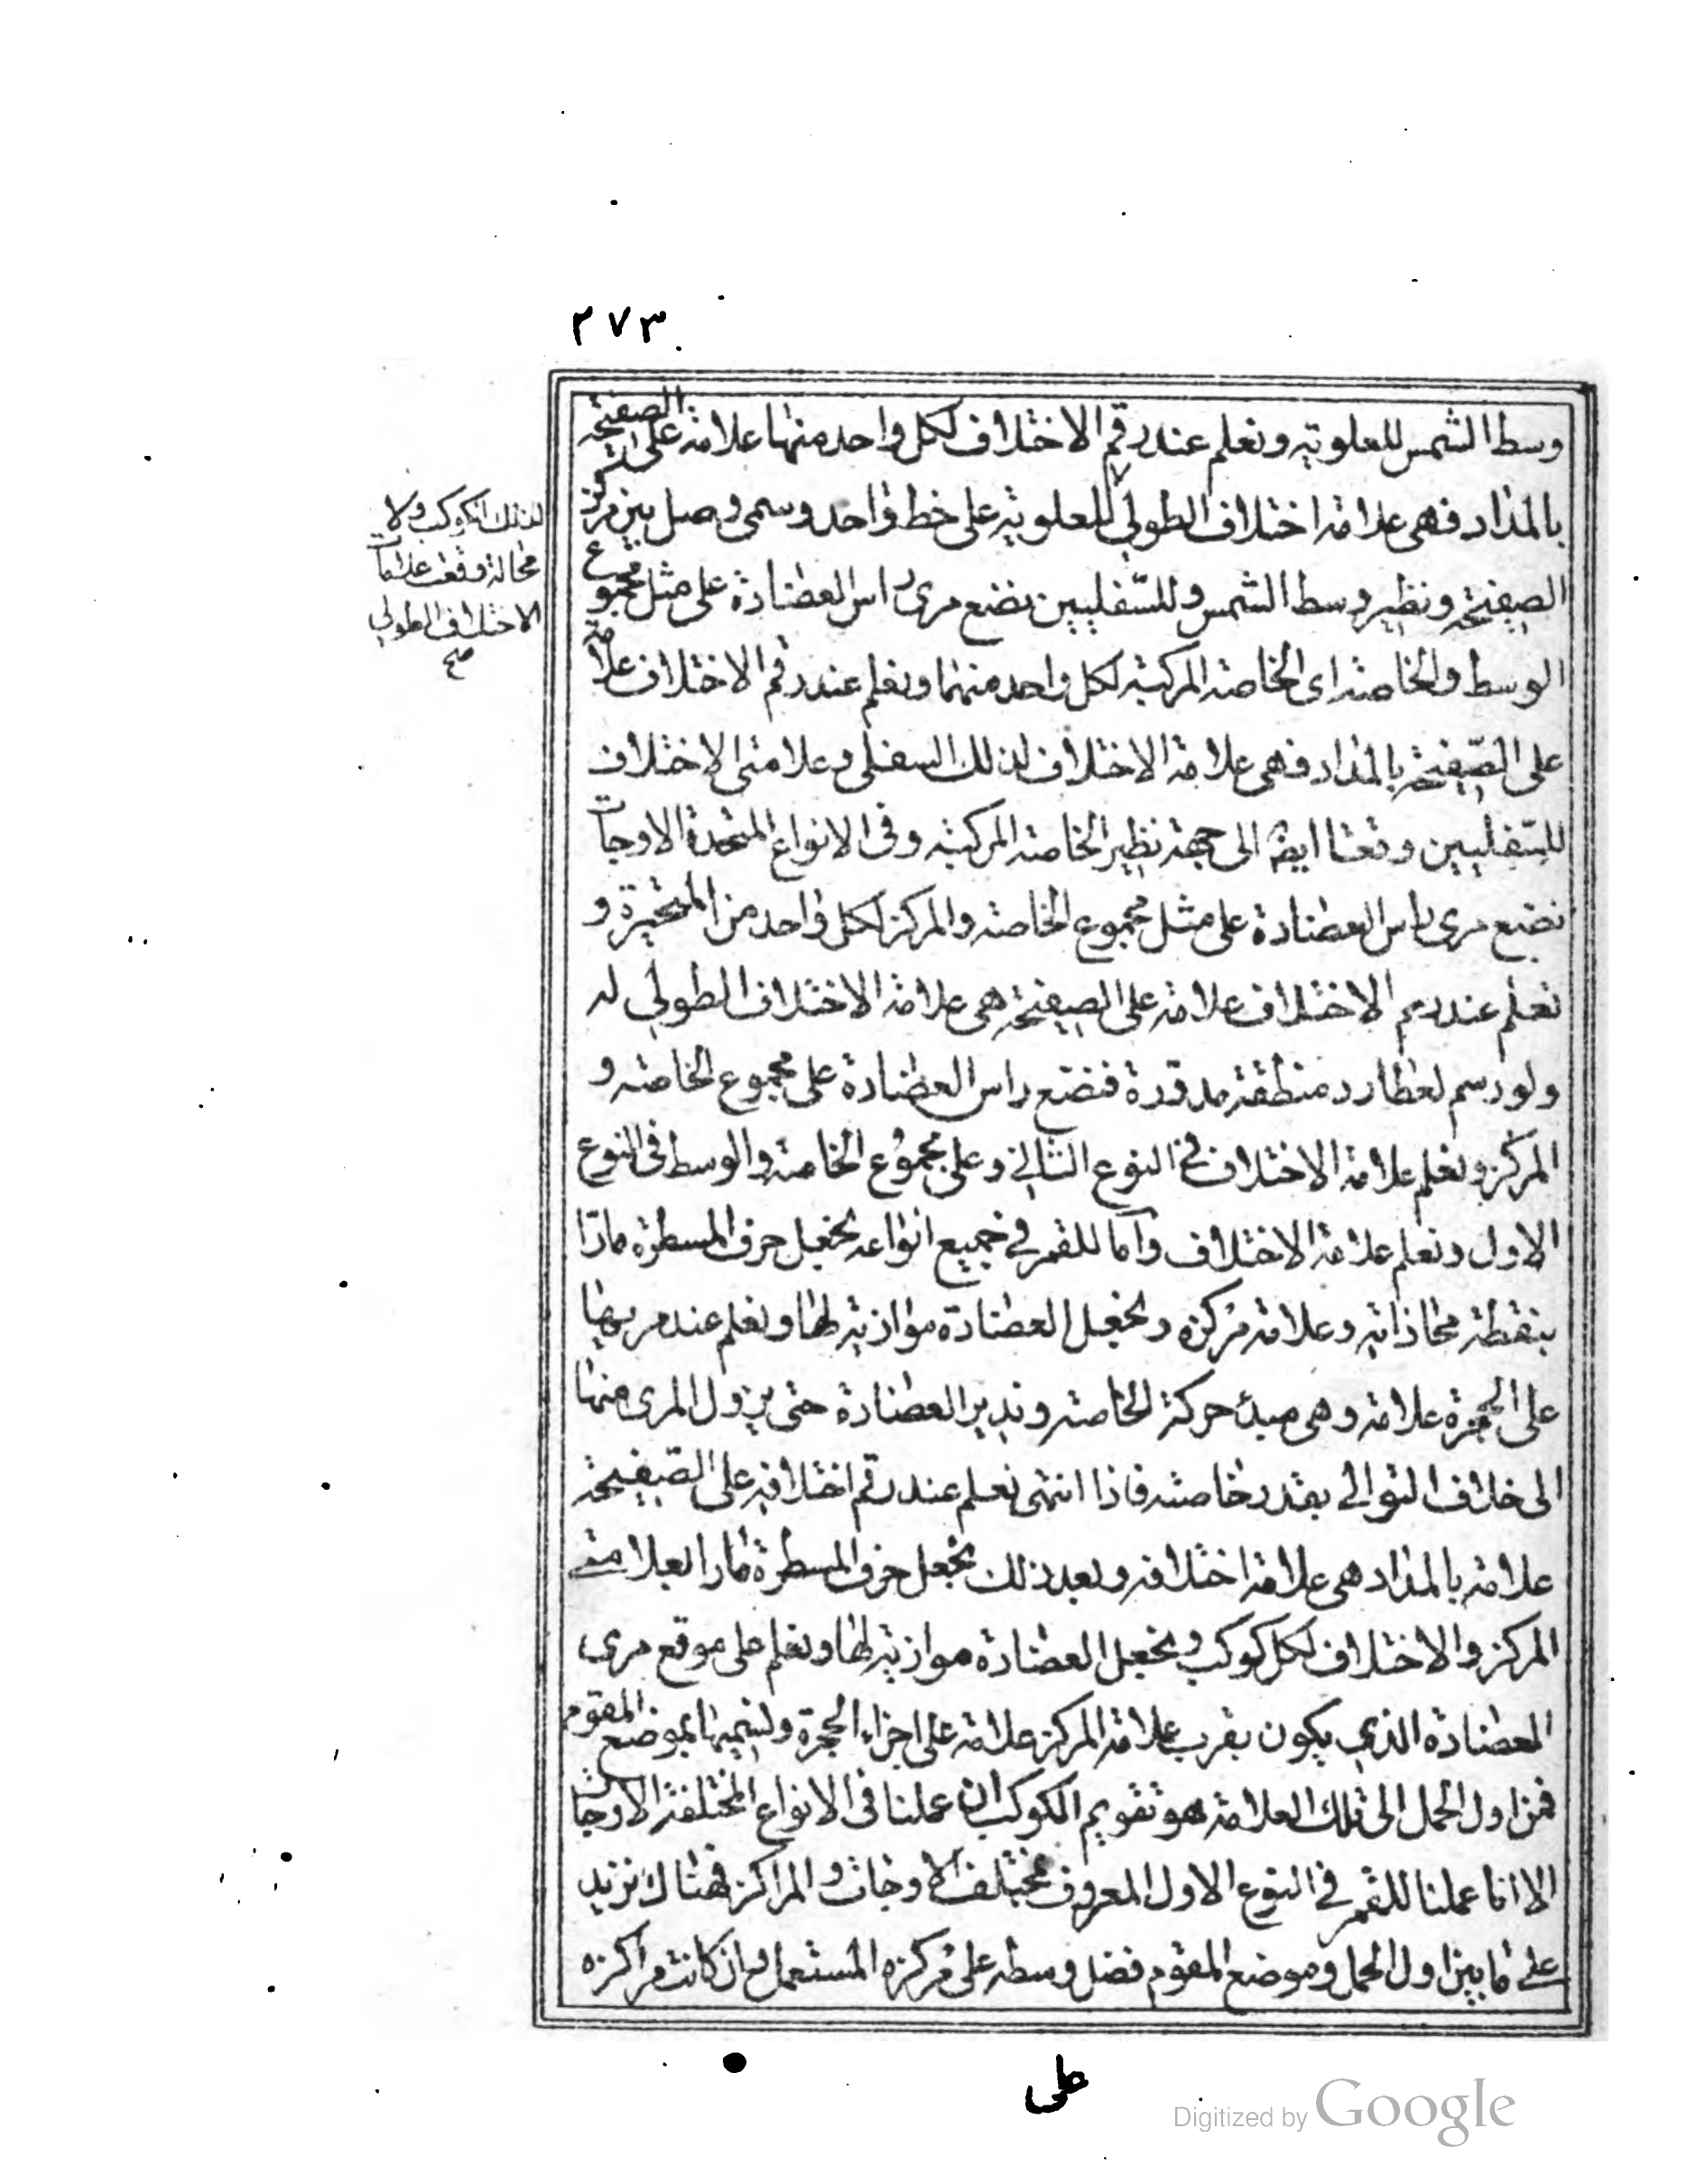 ٢٧٣
وسط الشمس للعلويه ونعلم عند رقم الاختلاف لكل واحد منها علامة على الصفيحة
بالمداد فهى علامة اختلاف الطولي للعلوية على خط واحد وسمى وصل بين مركز
الصفيحة ونظير وسط الشمس وللسّفليين نضع مرى راس العضادة على مثل مجموع
الوسط والخاصة اى الخاصة المركبة لكل واحد منهما ونعلم عند رقم الاختلاف علامة
على الصّفيحة بالمداد فهى علامة الاختلاف لذلك السفلى وعلامتى الاختلاف
للسّفليين وقعتا ايضا الى جهة نظير الخاصة المركبة وفى الانواع المتحدة الاوجات
نضع مرى راس العضادة على مثل مجموع الخاصة والمركز لكل واحد من المتحيرة و
نعلم عند رقم الاختلاف علامة على الصفيحة هى علامة الاختلاف الطولي له
ولو رسم لعطارد منطقة مدورة فنضع راس العضادة على مجموع الخاصة و
المركز ونعلم علامة الاختلاف في النوع الثاني وعلى مجموع الخاصة والوسط فى النوع
الاول ونعلم علامة الاختلاف واما للقمر في جميع انواعه نجعل حرف المسطرة مارّا
بنقطة محاذاته وعلامة مركزه ونجعل العضادة موازية لها ونعلم عند مريها
على الحجرة علامة وهى مبدء حركة الخاصة وندير العضادة حتى يزول المرى منها
الى خلاف التوالي بقدر خاصته فاذا انتهى نعلم عند رقم اختلافه على الصّفيحة
علامة بالمداد هى علامة اختلافه وبعد ذلك نجعل حرف المسطرة مارا بعلامتي
المركز والاختلاف لكل كوكب ونجعل العضادة موازية لها ونعلم على موقع مرى
العضادة الذي يكون بقرب علامة المركز علامة على اجزاء الحجرة ونسميها بموضع المقوم
فمن اول الحمل الى تلك العلامة هو تقويم الكوكب ان عملنا فى الانواع المختلفة الاوجات
الا انا عملنا للقمر في النوع الاول المعروف بمختلف الاوجات والمراكز فهناك نزيد
على ما بين اول الحمل وموضع المقوم فضل وسطه على مركزه المستعمل وان كانت مراكزه
لذلك الكوكب ولا
محالة وقعت علامات
الاختلاف الطولي
صح
على
Digitized by Google